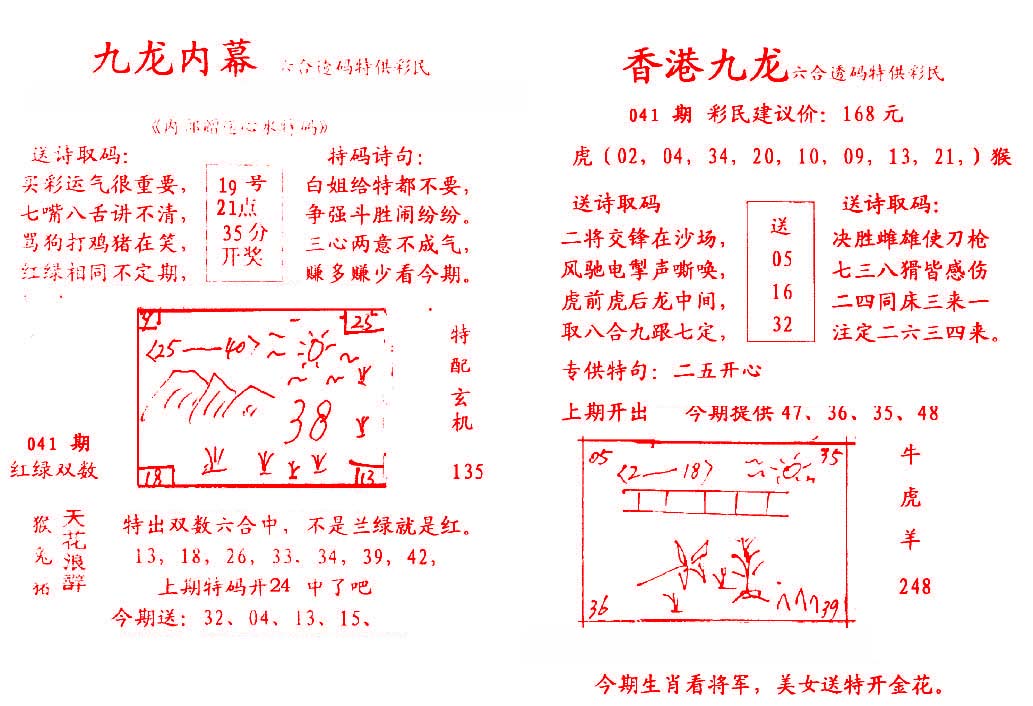 九龙内幕 六合透码特供彩民
《内部赠送心水特码》
送诗取码：
买彩运气很重要，
七嘴八舌讲不清，
骂狗打鸡猪在笑，
红绿相同不定期，
19号
21点
35分
开奖
特码诗句：
白姐给特都不要，
争强斗胜闹纷纷。
三心两意不成气，
赚多赚少看今期。
25
〈25——40〉
38
18
13
特配玄机
135
041 期
红绿双数
猴兔
天花浪辞
特出双数六合中，不是兰绿就是红。
13，18，26，33．34，39，42，
上期特码开24 中了吧
今期送：32、04、13、15、
香港九龙 六合透码特供彩民
041 期 彩民建议价：168元
虎（02，04，34，20，10，09，13，21，）猴
送诗取码
二将交锋在沙场，
风驰电掣声嘶唤，
虎前虎后龙中间，
取八合九跟七定，
送
05
16
32
送诗取码：
决胜雌雄使刀枪
七三八猾皆感伤
二四同床三来一
注定二六三四来。
专供特句：二五开心
上期开出 今期提供47、36、35、48
05
35
〈2——18〉
36
39
牛
虎
羊
248
今期生肖看将军，美女送特开金花。